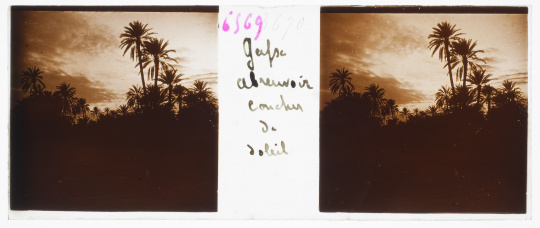 6569
6570
Gafsa
abreuvoir
coucher
de
soleil